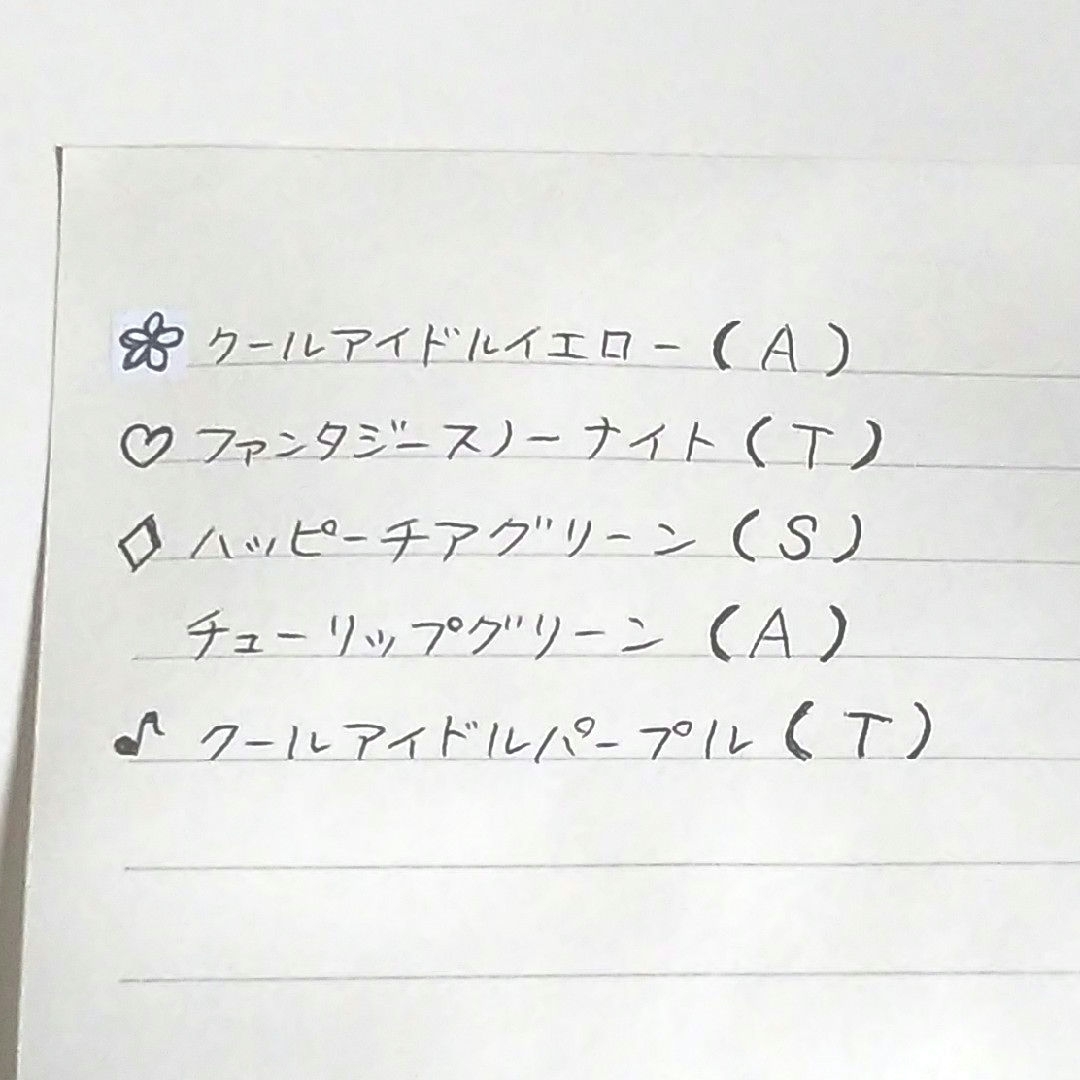 クールアイドルイエロー(A)
♡ ファンタジースノーナイト(T)
◇ ハッピーチアグリーン(S)
チューリップグリーン(A)
♪ クールアイドルパープル(T)